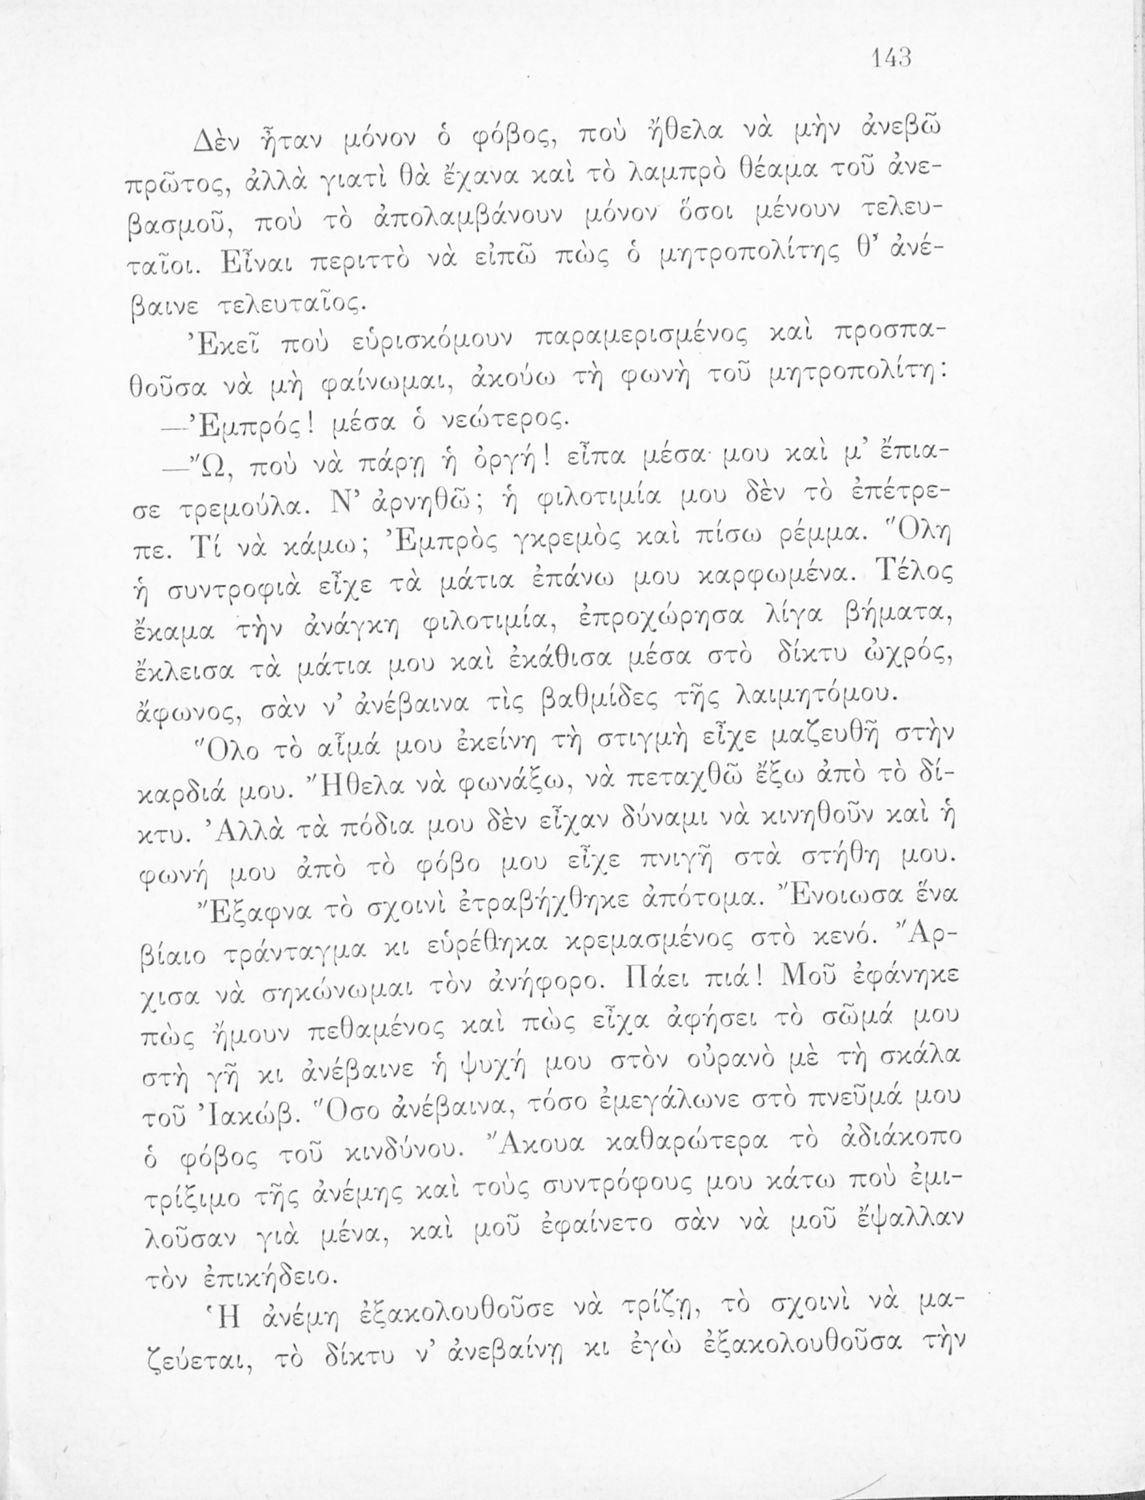 143
Δὲν ἦταν μόνον ὁ φόβος, ποὺ ἤθελα νὰ μὴν ἀνεβῶ
πρῶτος, ἀλλὰ γιατὶ θὰ ἔχανα καὶ τὸ λαμπρὸ θέαμα τοῦ ἀνε-
βασμοῦ, ποὺ τὸ ἀπολαμβάνουν μόνον ὅσοι μένουν τελευ-
ταῖοι. Εἶναι περιττὸ νὰ εἰπῶ πὼς ὁ μητροπολίτης θ’ ἀνέ-
βαινε τελευταῖος.
Ἐκεῖ ποὺ εὑρισκόμουν παραμερισμένος καὶ προσπα-
θοῦσα νὰ μὴ φαίνωμαι, ἀκούω τὴ φωνὴ τοῦ μητροπολίτη:
—Ἐμπρός! μέσα ὁ νεώτερος.
—Ὤ, ποὺ νὰ πάρῃ ἡ ὀργή! εἶπα μέσα μου καὶ μ’ ἔπια-
σε τρεμούλα. Ν’ ἀρνηθῶ; ἡ φιλοτιμία μου δὲν τὸ ἐπέτρε-
πε. Τί νὰ κάμω; Ἐμπρὸς γκρεμὸς καὶ πίσω ρέμμα. Ὅλη
ἡ συντροφιὰ εἶχε τὰ μάτια ἐπάνω μου καρφωμένα. Τέλος
ἔκαμα τὴν ἀνάγκη φιλοτιμία, ἐπροχώρησα λίγα βήματα,
ἔκλεισα τὰ μάτια μου καὶ ἐκάθισα μέσα στὸ δίκτυ ὠχρός,
ἄφωνος, σὰν ν’ ἀνέβαινα τὶς βαθμίδες τῆς λαιμητόμου.
Ὅλο τὸ αἷμά μου ἐκείνη τὴ στιγμὴ εἶχε μαζευθῆ στὴν
καρδιά μου. Ἤθελα νὰ φωνάξω, νὰ πεταχθῶ ἔξω ἀπὸ τὸ δί-
κτυ. Ἀλλὰ τὰ πόδια μου δὲν εἶχαν δύναμι νὰ κινηθοῦν καὶ ἡ
φωνή μου ἀπὸ τὸ φόβο μου εἶχε πνιγῆ στὰ στήθη μου.
Ἔξαφνα τὸ σχοινὶ ἐτραβήχθηκε ἀπότομα. Ἔνοιωσα ἕνα
βίαιο τράνταγμα κι εὑρέθηκα κρεμασμένος στὸ κενό. Ἄρ-
χισα νὰ σηκώνωμαι τὸν ἀνήφορο. Πάει πιά! Μοῦ ἐφάνηκε
πὼς ἤμουν πεθαμένος καὶ πὼς εἶχα ἀφήσει τὸ σῶμά μου
στὴ γῆ κι ἀνέβαινε ἡ ψυχή μου στὸν οὐρανὸ μὲ τὴ σκάλα
τοῦ Ἰακώβ. Ὅσο ἀνέβαινα, τόσο ἐμεγάλωνε στὸ πνεῦμά μου
ὁ φόβος τοῦ κινδύνου. Ἄκουα καθαρώτερα τὸ ἀδιάκοπο
τρίξιμο τῆς ἀνέμης καὶ τοὺς συντρόφους μου κάτω ποὺ ἐμι-
λοῦσαν γιὰ μένα, καὶ μοῦ ἐφαίνετο σὰν νὰ μοῦ ἔψαλλαν
τὸν ἐπικήδειο.
Ἡ ἀνέμη ἐξακολουθοῦσε νὰ τρίζῃ, τὸ σχοινὶ νὰ μα-
ζεύεται, τὸ δίκτυ ν’ ἀνεβαίνῃ κι ἐγὼ ἐξακολουθοῦσα τὴν